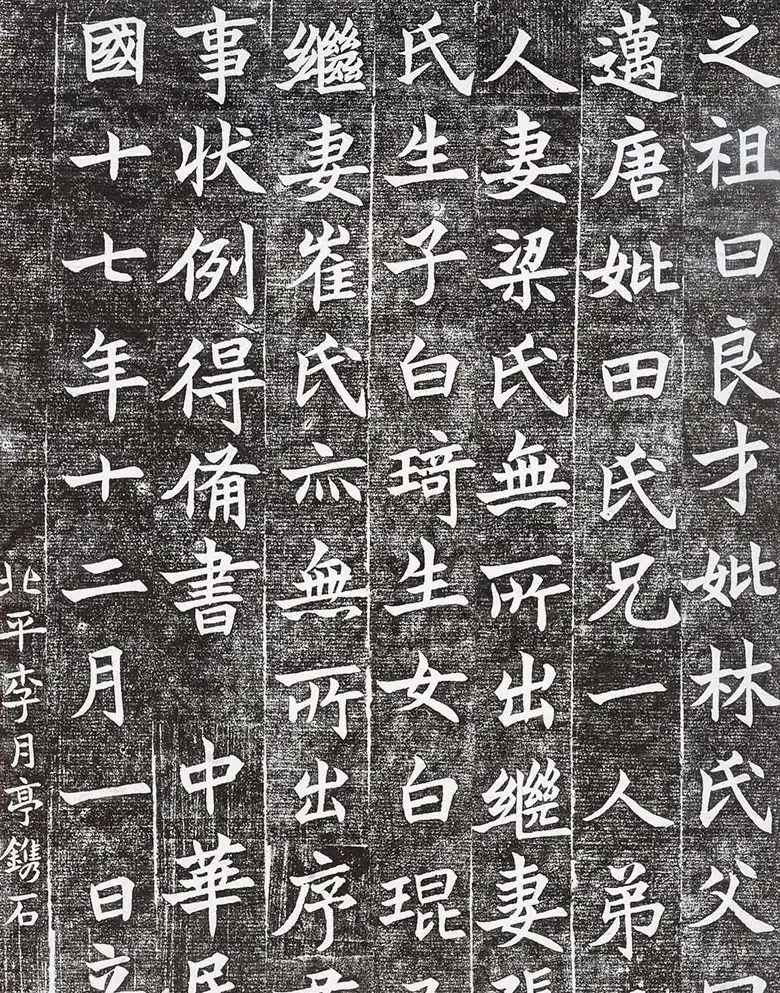 之祖曰良才妣林氏父曰
邁唐妣田氏兄一人弟
人妻梁氏無所出繼妻張
氏生子白琦生女白琨
繼妻崔氏亦無所出序
事状例得備書 中華民
國十七年十二月一日立
北平李月亭鐫石